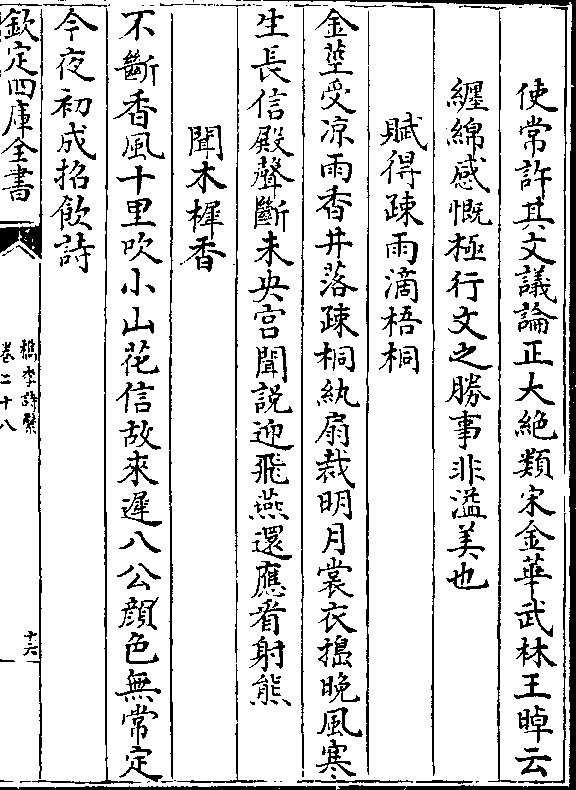 使常許其文議論正大絶類宋金華武林王晫云
纏綿感慨極行文之勝事非溢美也
賦得疎雨滴梧桐
金莖受凉雨香井落疎桐紈扇裁明月裳衣搗晩風寒
生長信殿聲斷未央宫聞說迎飛燕還應看射熊
聞木樨香
不斷香風十里吹小山花信故來遲八公顔色無常定
今夜初成招飲詩
欽定四庫全書
檇李詩繫
卷二十八
十六